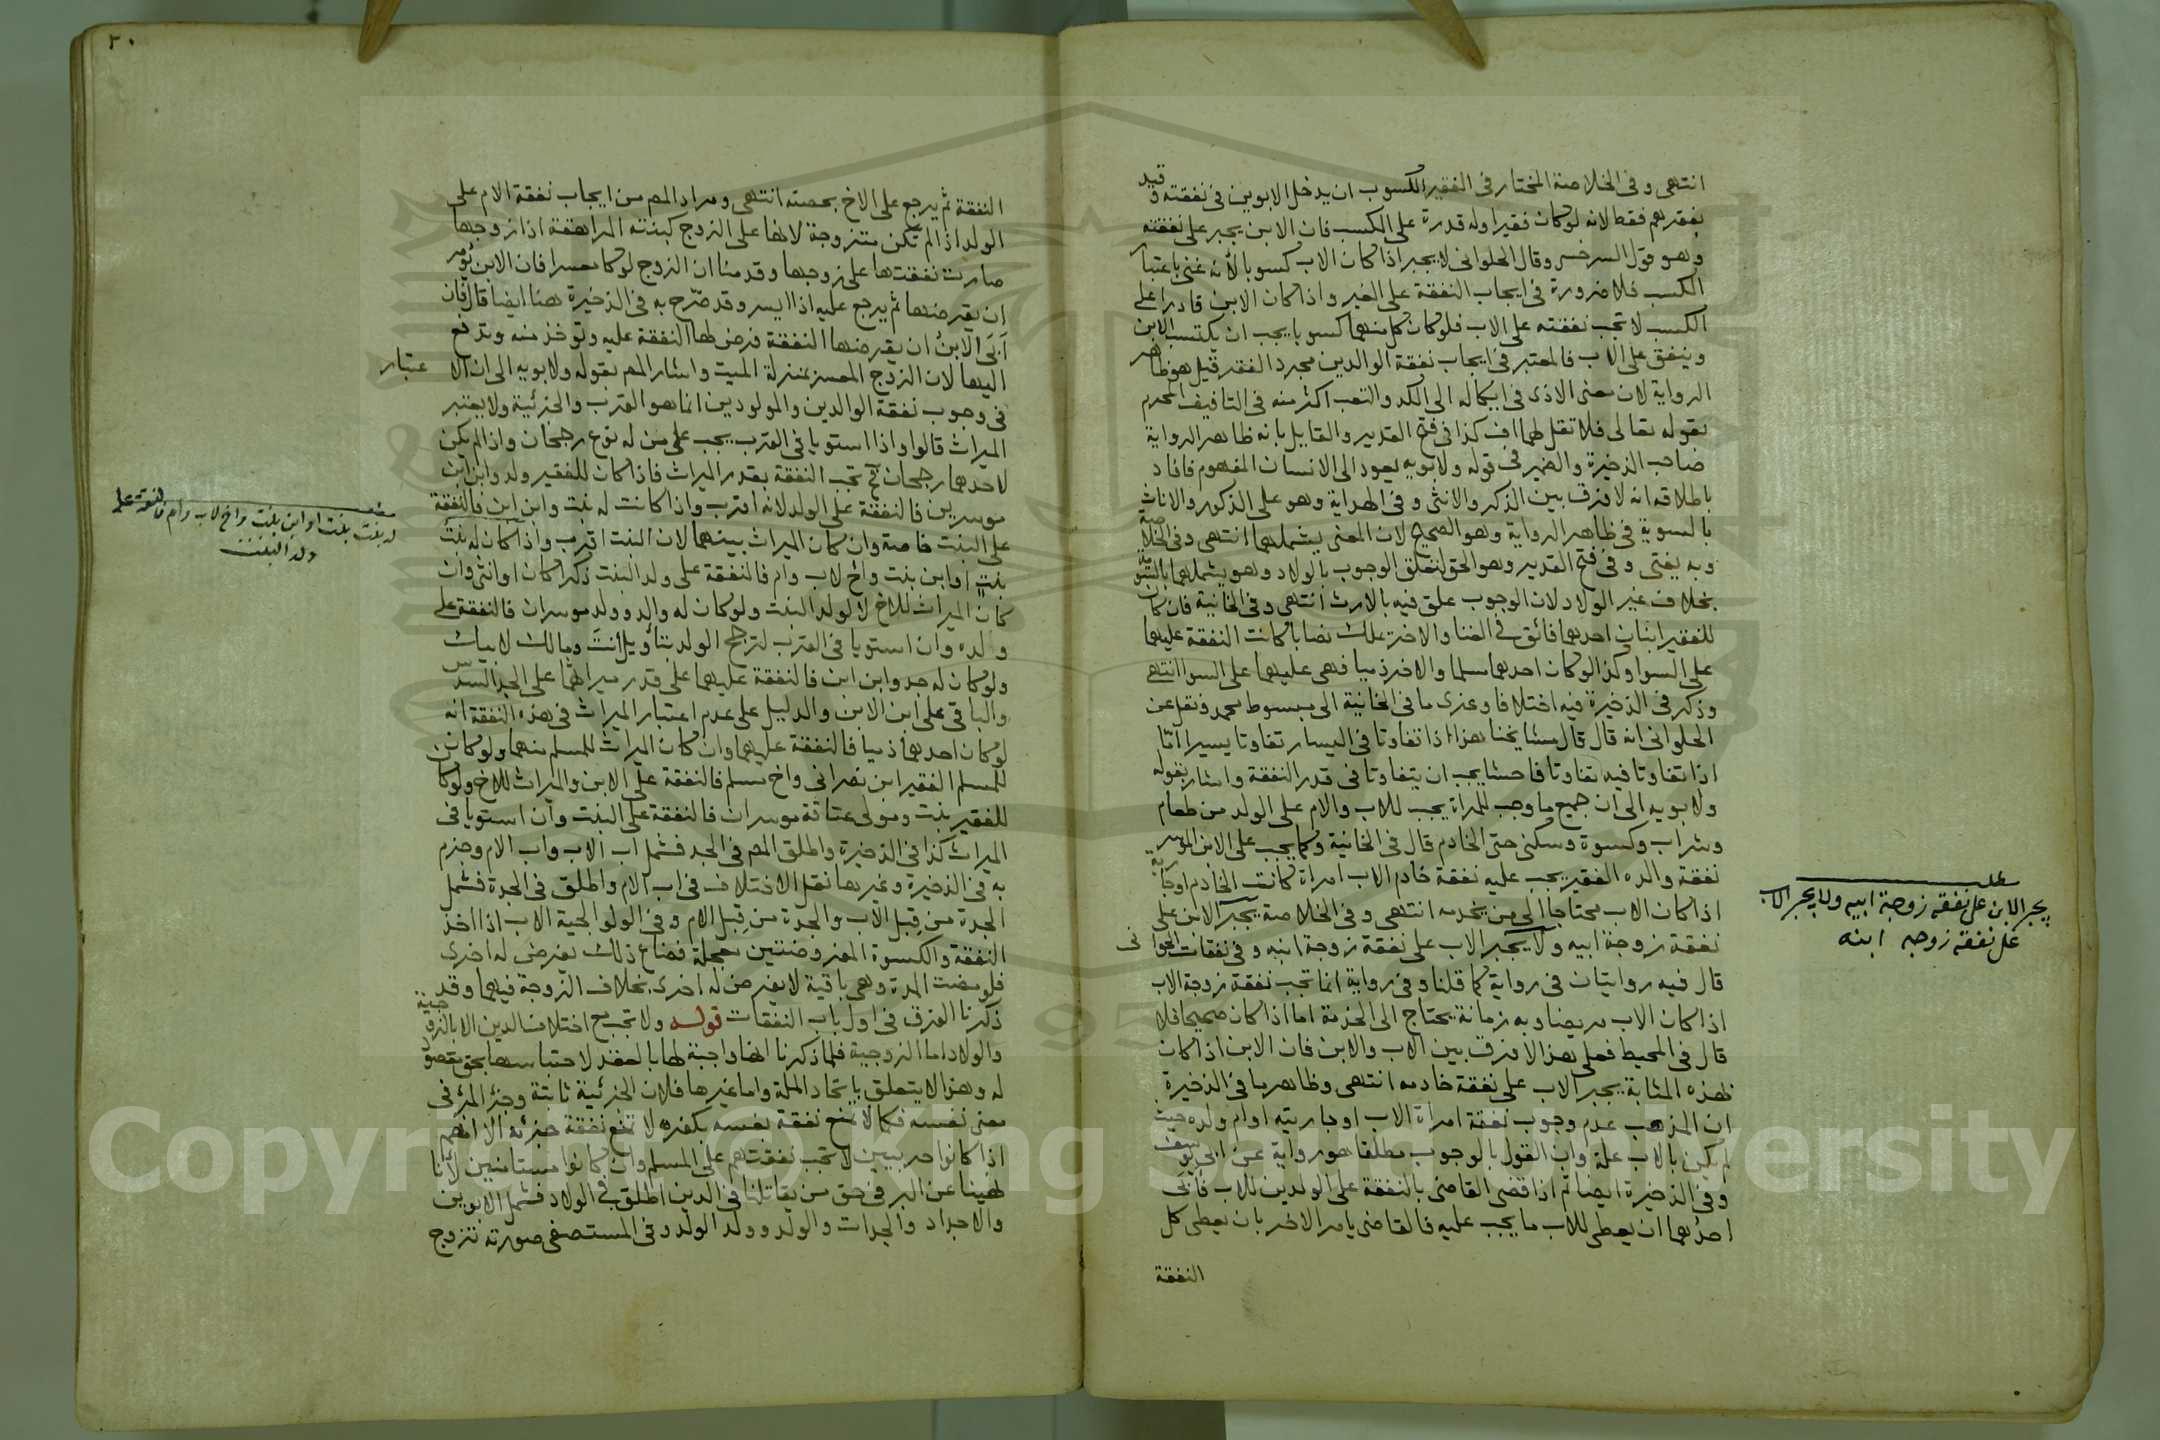 انتهى وفى الخلاصة المختار فى الفقير الكسوب ان يدخل الابوين فى نفقته وقيد
بفقرهم فقط لانه لو كان فقيرا وله قدرة على الكسب فان الابن يجبر على نفقته
وهو قول السرخسى وقال الحلوانى لا يجبر اذا كان الاب كسوبا لانه غنى باعتبار
الكسب فلا ضرورة فى ايجاب النفقة على الغير واذا كان الابن قادرا على
الكسب لا تجب نفقته على الاب فلو كان كل منهما كسوبا يجب ان يكتسب الابن
وينفق على الاب فالمعتبر فى ايجاب نفقة الوالدين مجرد الفقر قيل هو ظاهر
الرواية لان معنى الاذى فى ايكاله الى الكد والتعب اكثر منه فى التافيف المحرم
بقوله تعالى فلا تقل لهما اف كذا فى فتح القدير والقايل بانه ظاهر الرواية
صاحب الذخيرة والضمير فى قوله ولابويه يعود الى الانسان المفهوم فافاد
باطلاقه انه لا فرق بين الذكر والانثى وفى الهداية وهو على الذكور والاناث
بالسوية فى ظاهر الرواية وهو الصحيح لان المعنى يشملهما انتهى وفى الخلاصة
وبه يفتى وفى فتح القدير وهو الحق لتعلق الوجوب بالولاد وهو يشملهما بالسوية
بخلاف غير الولاد لان الوجوب علق فيه بالارث انتهى وفى الخانية فان كان
للفقير ابنان احدهما فائق فى الغنا والاخر يملك نصابا كانت النفقة عليهما
على السوا وكذا لو كان احدهما مسلما والاخر ذميا فهى عليهما على السوا انتهى
وذكر فى الذخيرة فيه اختلافا وعزى ما فى الخانية الى مبسوط محمد ونقل عن
الحلوانى انه قال قال مشايخنا هذا اذا تفاوتا فى اليسار تفاوتا يسيرا امّا
اذا تفاوتا فيه تفاوتا فاحشا يجب ان يتفاوتا فى قدر النفقة واشار بقوله
ولابويه الى ان جميع ما وجب للمراة يجب للاب والام على الولد من طعام
وشراب وكسوة وسكنى حتى الخادم قال فى الخانية وكما يجب على الابن الموسر
نفقة والده الفقير يجب عليه نفقة خادم الاب امراة كانت الخادم او جارية
اذا كان الاب محتاجا الى من يخدمه انتهى وفى الخلاصة يجبر الابن على
نفقة زوجة ابيه ولا يجبر الاب على نفقة زوجة ابنه وفى نفقات الحلوانى
قال فيه روايتان فى رواية كما قلنا وفى رواية انما تجب نفقة زوجة الاب
اذا كان الاب مريضا وبه زمانة يحتاج الى الخدمة اما اذا كان صحيحا فلا
قال فى المحيط فعلى هذا لا فرق بين الاب والابن فان الابن اذا كان
بهذه المثابة يجبر الاب على نفقة خادمه انتهى وظاهر ما فى الذخيرة
ان المذهب عدم وجوب نفقة امراة الاب او جاريته او ام ولده حيث
لم يكن بالاب علة وان القول بالوجوب مطلقا هو رواية عن ابى يوسف
وفى الذخيرة ايضا ثم اذا قضى القاضى بالنفقة على الولدين للاب فابى
احدهما ان يعطى للاب ما يجب عليه فالقاضى يامر الاخر بان يعطى كل
النفقة
يجبر الابن على نفقه زوجة ابيه ولا يجبر الاب
على نفقه زوجه ابنه
٢٠
النفقة ثم يرجع على الاخ بحصته انتهى ومراد المص من ايجاب نفقة الام على
الولد اذا لم تكن متزوجة لانها على الزوج كبنته المراهقة اذا زوجها
صارت نفقتها على زوجها وقدمنا ان الزوج لو كان معسرا فان الابن يؤمر
ان يقرضها ثم يرجع عليه اذا ايسر وقد صرّح به فى الذخيرة هنا ايضا قال فان
اَبَى الابنُ ان يقرضها النفقة فرض لها النفقة عليه وتوخذ منه وتدفع
اليها لان الزوج المعسر بمنزلة الميت واشار المص بقوله ولابويه الى ان الا عتبار
فى وجوب نفقة الوالدين والمولودين انما هو القرب والجزئية ولا يعتبر
الميراث قالوا واذا استويا فى القرب يجب على من له نوع رجحان واذا لم يكن
لاحدهما رجحان ح تجب النفقة بقدر الميراث فاذا كان للفقير ولد وابن ابن
موسرين فالنفقة على الولد لانه اقرب واذا كانت له بنت وابن ابن فالنفقة
على البنت خاصة وان كان الميراث بينهما لان البنت اقرب واذا كان له بنت
بنت او ابن بنت واخ لاب وام فالنفقة على ولد البنت ذكرا كان او انثى وان
كان الميراث للاخ لا لولد البنت ولو كان له والد وولد موسران فالنفقة على
ولده وان استويا فى القرب لترجح الولد بتأويل انت ومالك لابيك
ولو كان له جد وابن ابن فالنفقة عليهما على قدر ميراثهما على الجد السدس
والباقى على ابن الابن والدليل على عدم اعتبار الميراث فى هذه النفقة انه
لو كان احدهما ذميا فالنفقة عليهما وان كان الميراث للمسلم منهما ولو كان
للمسلم الفقير ابن نصرانى واخ مسلم فالنفقة على الابن والميراث للاخ ولو كان
للفقير بنت ومولى عتاقة موسران فالنفقة على البنت وان استويا فى
الميراث كذا فى الذخيرة واطلق المص فى الجد فشمل اب الاب واب الام وجزم
به فى الذخيرة وغيرها نقل الاختلاف فى اب الام واطلق فى الجدة فشمل
الجدة من قِبل الاب والجدة من قِبل الام وفى الولوالجية الاب اذا اخذ
النفقة والكسوة المفروضتين معجلة فضاع ذلك يفرض له اخرى
فلو مضت المدة وهى باقية لا يفرض له اخرى بخلاف الزوجة فيهما وقد
ذكرنا الفرق فى اول باب النفقات قوله ولا تجب مع اختلاف الدين الا بالزوجية
والولاد اما الزوجية فلما ذكرنا انها واجبة لها بالعقد لاحتباسها بحق مقصود
له وهذا لا يتعلق باتحاد الملة واما غيرها فلان الجزئية ثابتة وجزء المرء فى
معنى نفسه فكما لا تمنع نفقة نفسه بكفره لا تمنع نفقة جزئه الا انهم
اذا كانوا حربيين لا تجب نفقتهم على المسلم وان كانوا مستامنين لانا
نهينا عن البر فى حق من يقاتلنا فى الدين اطلق فى الولاد فشمل الابوين
والاجداد والجدات والولد وولد الولد وفى المستصفى صورته تزوج
له بنت بنت او ابن بنت واخ لاب وام فالنفقة على
ولد البنت
Copyright © King Saud University